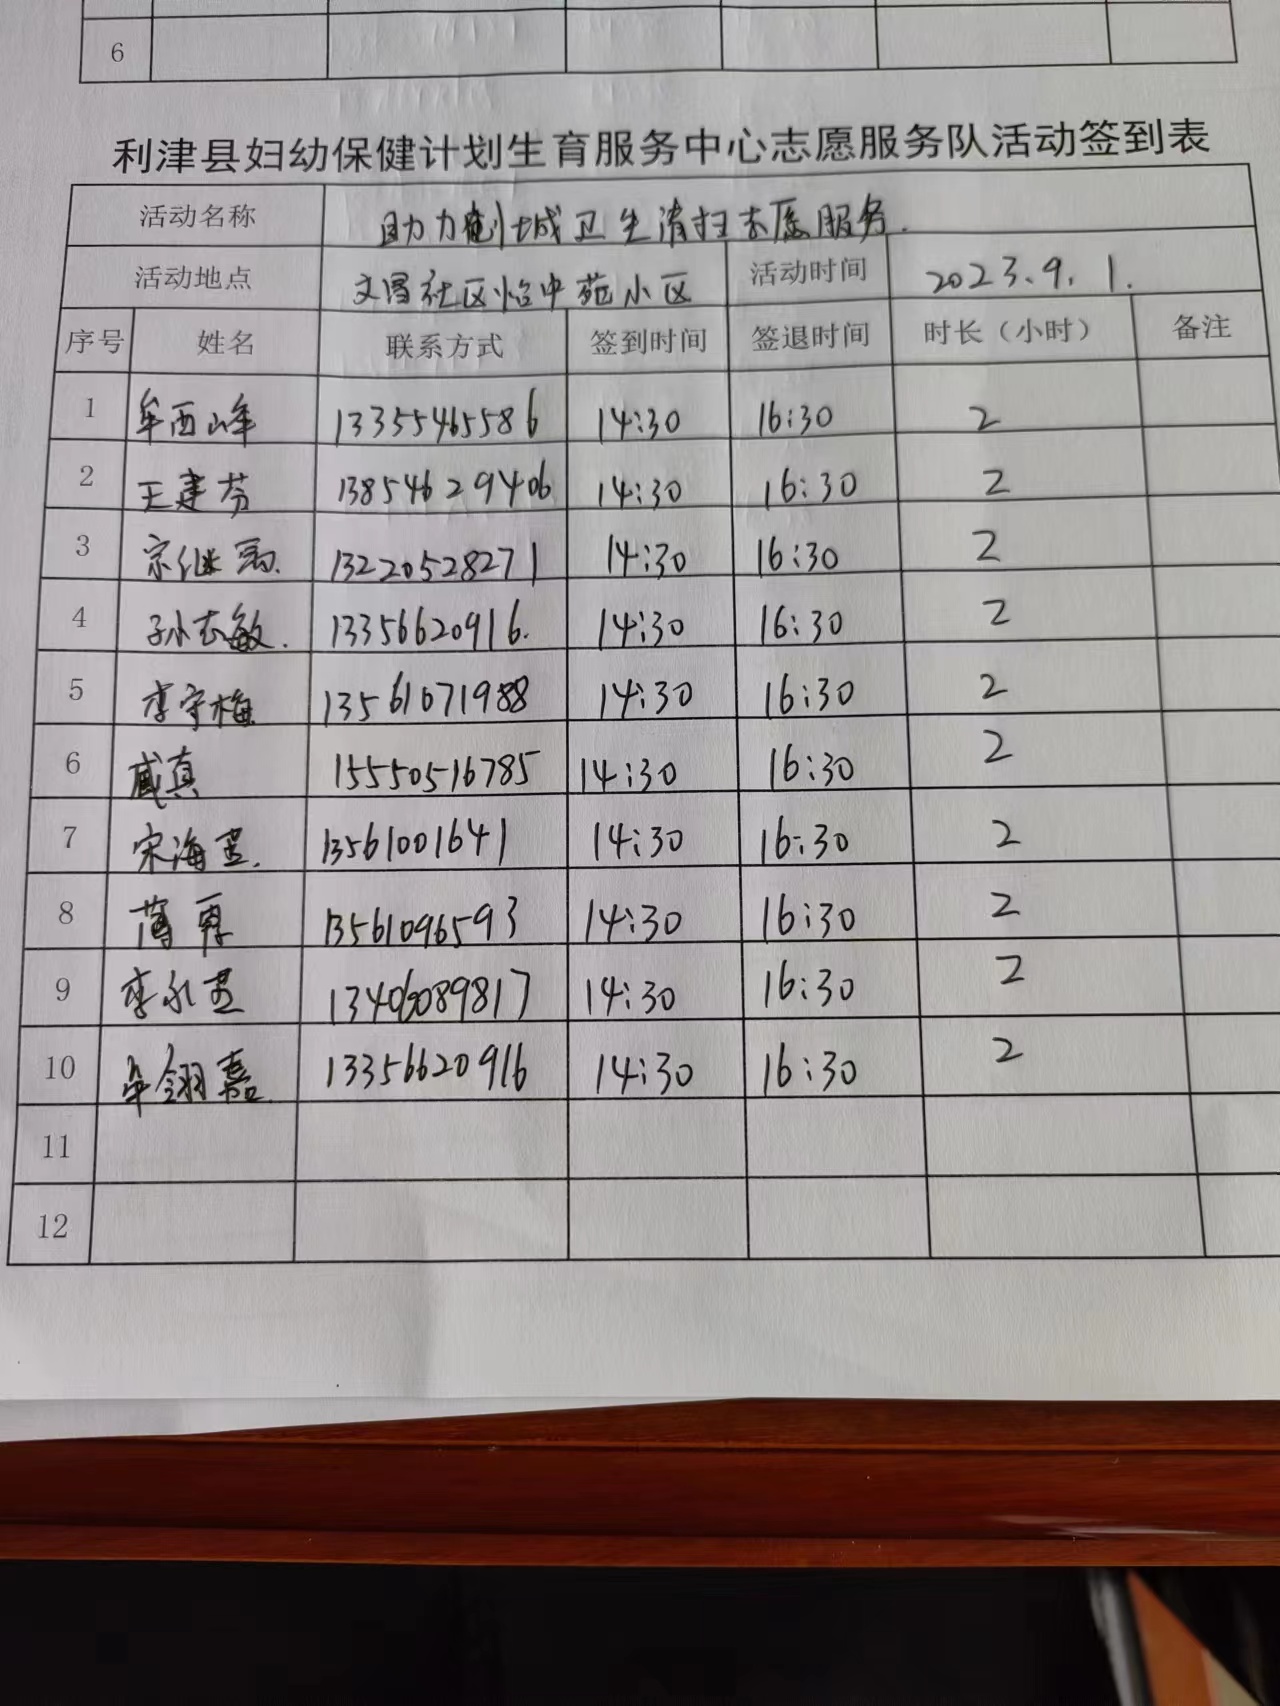 6
利津县妇幼保健计划生育服务中心志愿服务队活动签到表
活动名称 助力创城卫生清扫志愿服务.
活动地点 文昌社区怡中苑小区 活动时间 2023.9.1.
序号 姓名 联系方式 签到时间 签退时间 时长（小时） 备注
1 牟西峰 13355465586 14:30 16:30 2
2 王建芬 13854629406 14:30 16:30 2
3 宗继 13220528271 14:30 16:30 2
4 孙志敏. 13356620916. 14:30 16:30 2
5 李守梅 13561071988 14:30 16:30 2
6 臧真 15550516785 14:30 16:30 2
7 宋海燕. 13561001641 14:30 16:30 2
8 薄 13561096593 14:30 16:30 2
9 李永 13406089817 14:30 16:30 2
10 牟翎嘉 13356620916 14:30 16:30 2
11
12